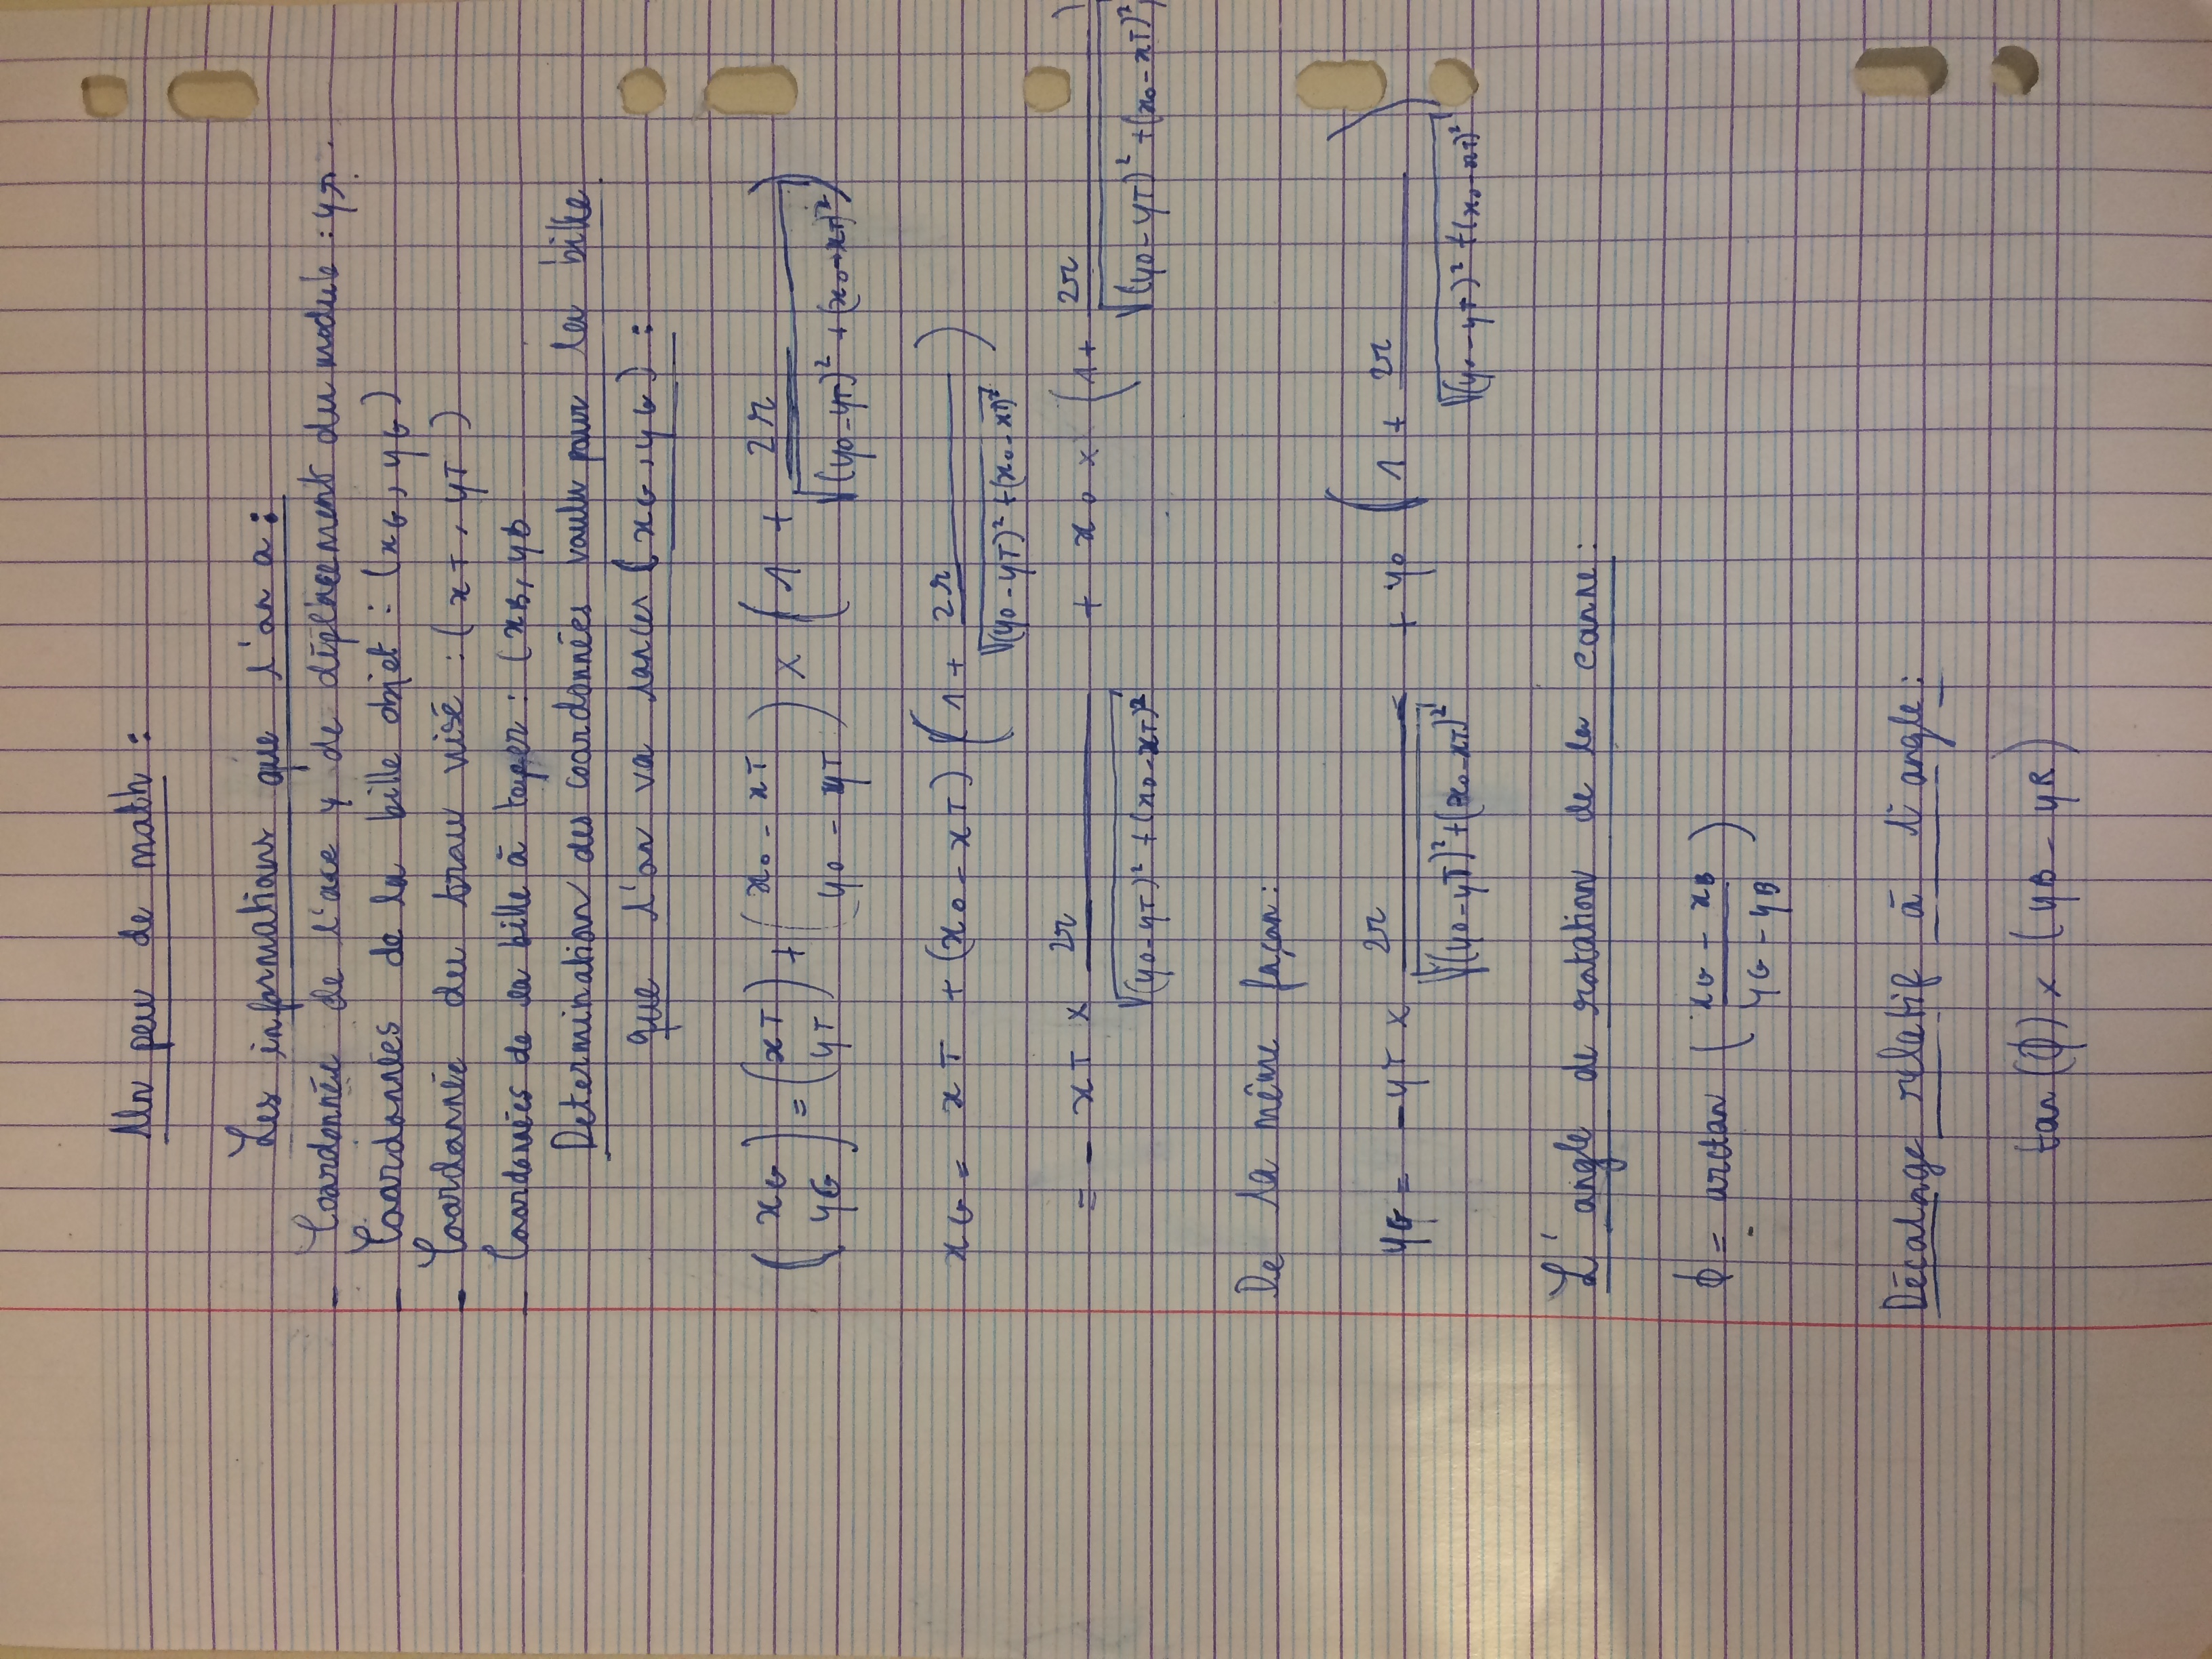 Un peu de math :
Les informations que l'on a :
- Coordonnée de l'axe y de déplacement du module : yR.
- Coordonnées de la bille objet : (xG, yG)
- Coordonnée du trou visé : (xT, yT)
- Coordonnées de la bille à taper : (xB, yB
Determination des coordonnées voulu pour la bille
que l'on va lancer (xG, yG) :
(xG yG) = (xT yT) + (xO - xT yO - yT) × (1 + 2r / √((yO-yT)² + (xO-xT)²))
xG = xT + (xO - xT) (1 + 2r / √((yO-yT)² + (xO-xT)²))
= - xT × 2r / √((yO-yT)² + (xO-xT)²) + xO × (1 + 2r / √((yO-yT)² + (xO-xT)²))
De la même façon :
yG = -yT × 2r / √((yO-yT)² + (xO-xT)²) + yO (1 + 2r / √((yO-yT)² + (xO-xT)²))
L'angle de rotation de la canne :
ϕ = arctan ((xG - xB) / (yG - yB))
Décalage relatif à l'angle :
tan(ϕ) × (yB - yR)